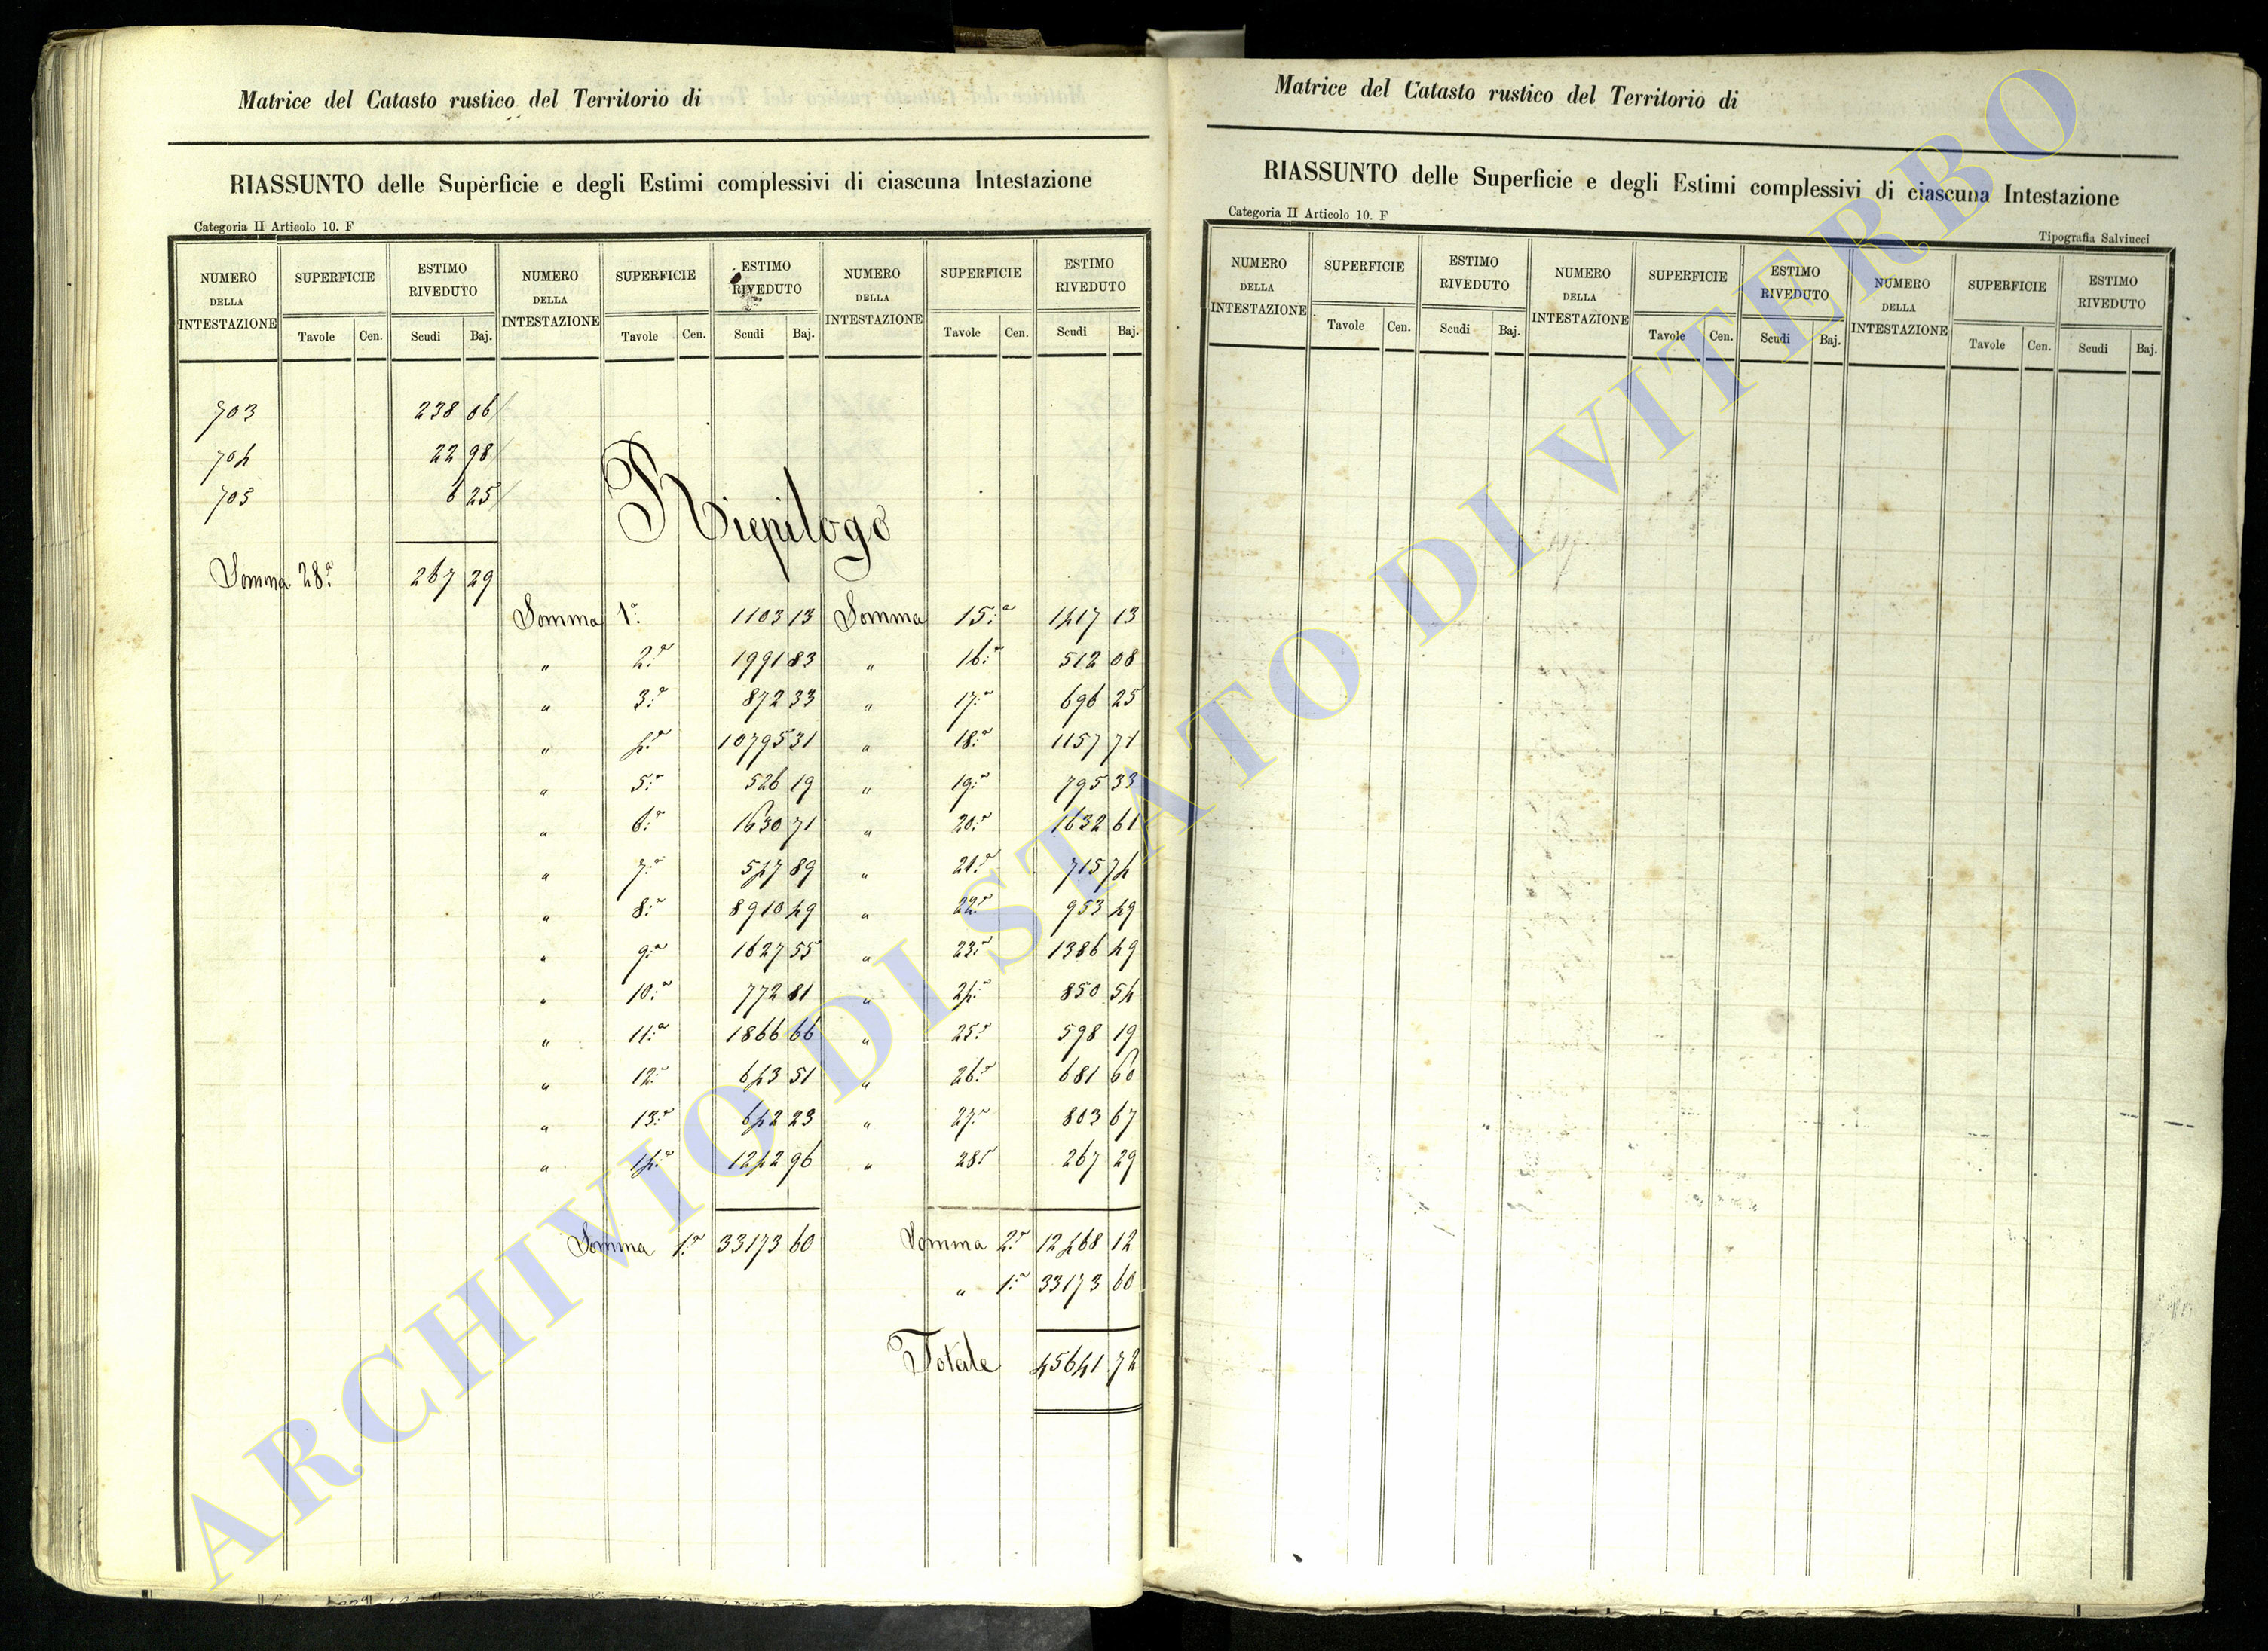 Matrice del Catasto rustico del Territorio di
RIASSUNTO delle Superficie e degli Estimi complessivi di ciascuna Intestazione
Categoria II Articolo 10. F
NUMERO DELLA INTESTAZIONE SUPERFICIE ESTIMO RIVEDUTO NUMERO DELLA INTESTAZIONE SUPERFICIE ESTIMO RIVEDUTO NUMERO DELLA INTESTAZIONE SUPERFICIE ESTIMO RIVEDUTO
Tavole Cen. Scudi Baj. Tavole Cen. Scudi Baj. Tavole Cen. Scudi Baj.
703 238 06
704 22 98
705 6 25
Riepilogo
Somma 28.a 267 29
Somma 1.a 1103 13 Somma 15.a 1417 13
" 2.a 1991 83 " 16.a 512 08
" 3.a 872 33 " 17.a 696 25
" 4.a 10795 31 " 18.a 1157 71
" 5.a 526 19 " 19.a 795 33
" 6.a 1630 71 " 20.a 1632 61
" 7.a 547 89 " 21.a 715 74
" 8.a 8910 49 " 22.a 953 49
" 9.a 1627 55 " 23.a 1386 49
" 10.a 772 81 " 24.a 850 54
" 11.a 1866 66 " 25.a 598 19
" 12.a 643 51 " 26.a 681 60
" 13.a 642 23 " 27.a 803 67
" 14.a 1242 96 " 28.a 267 29
Somma 1.a 33173 60 Somma 2.a 12468 12
" 1.a 33173 60
Totale 45641 72
Matrice del Catasto rustico del Territorio di
RIASSUNTO delle Superficie e degli Estimi complessivi di ciascuna Intestazione
Categoria II Articolo 10. F
Tipografia Salviucci
NUMERO DELLA INTESTAZIONE SUPERFICIE ESTIMO RIVEDUTO NUMERO DELLA INTESTAZIONE SUPERFICIE ESTIMO RIVEDUTO NUMERO DELLA INTESTAZIONE SUPERFICIE ESTIMO RIVEDUTO
Tavole Cen. Scudi Baj. Tavole Cen. Scudi Baj. Tavole Cen. Scudi Baj.
ARCHIVIO DI STATO DI VITERBO